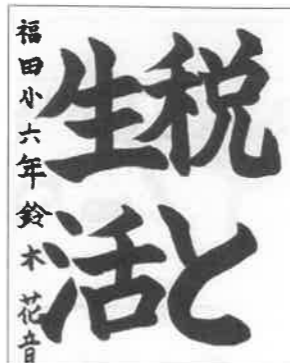 税と
生活
福田小六年鈴木花音